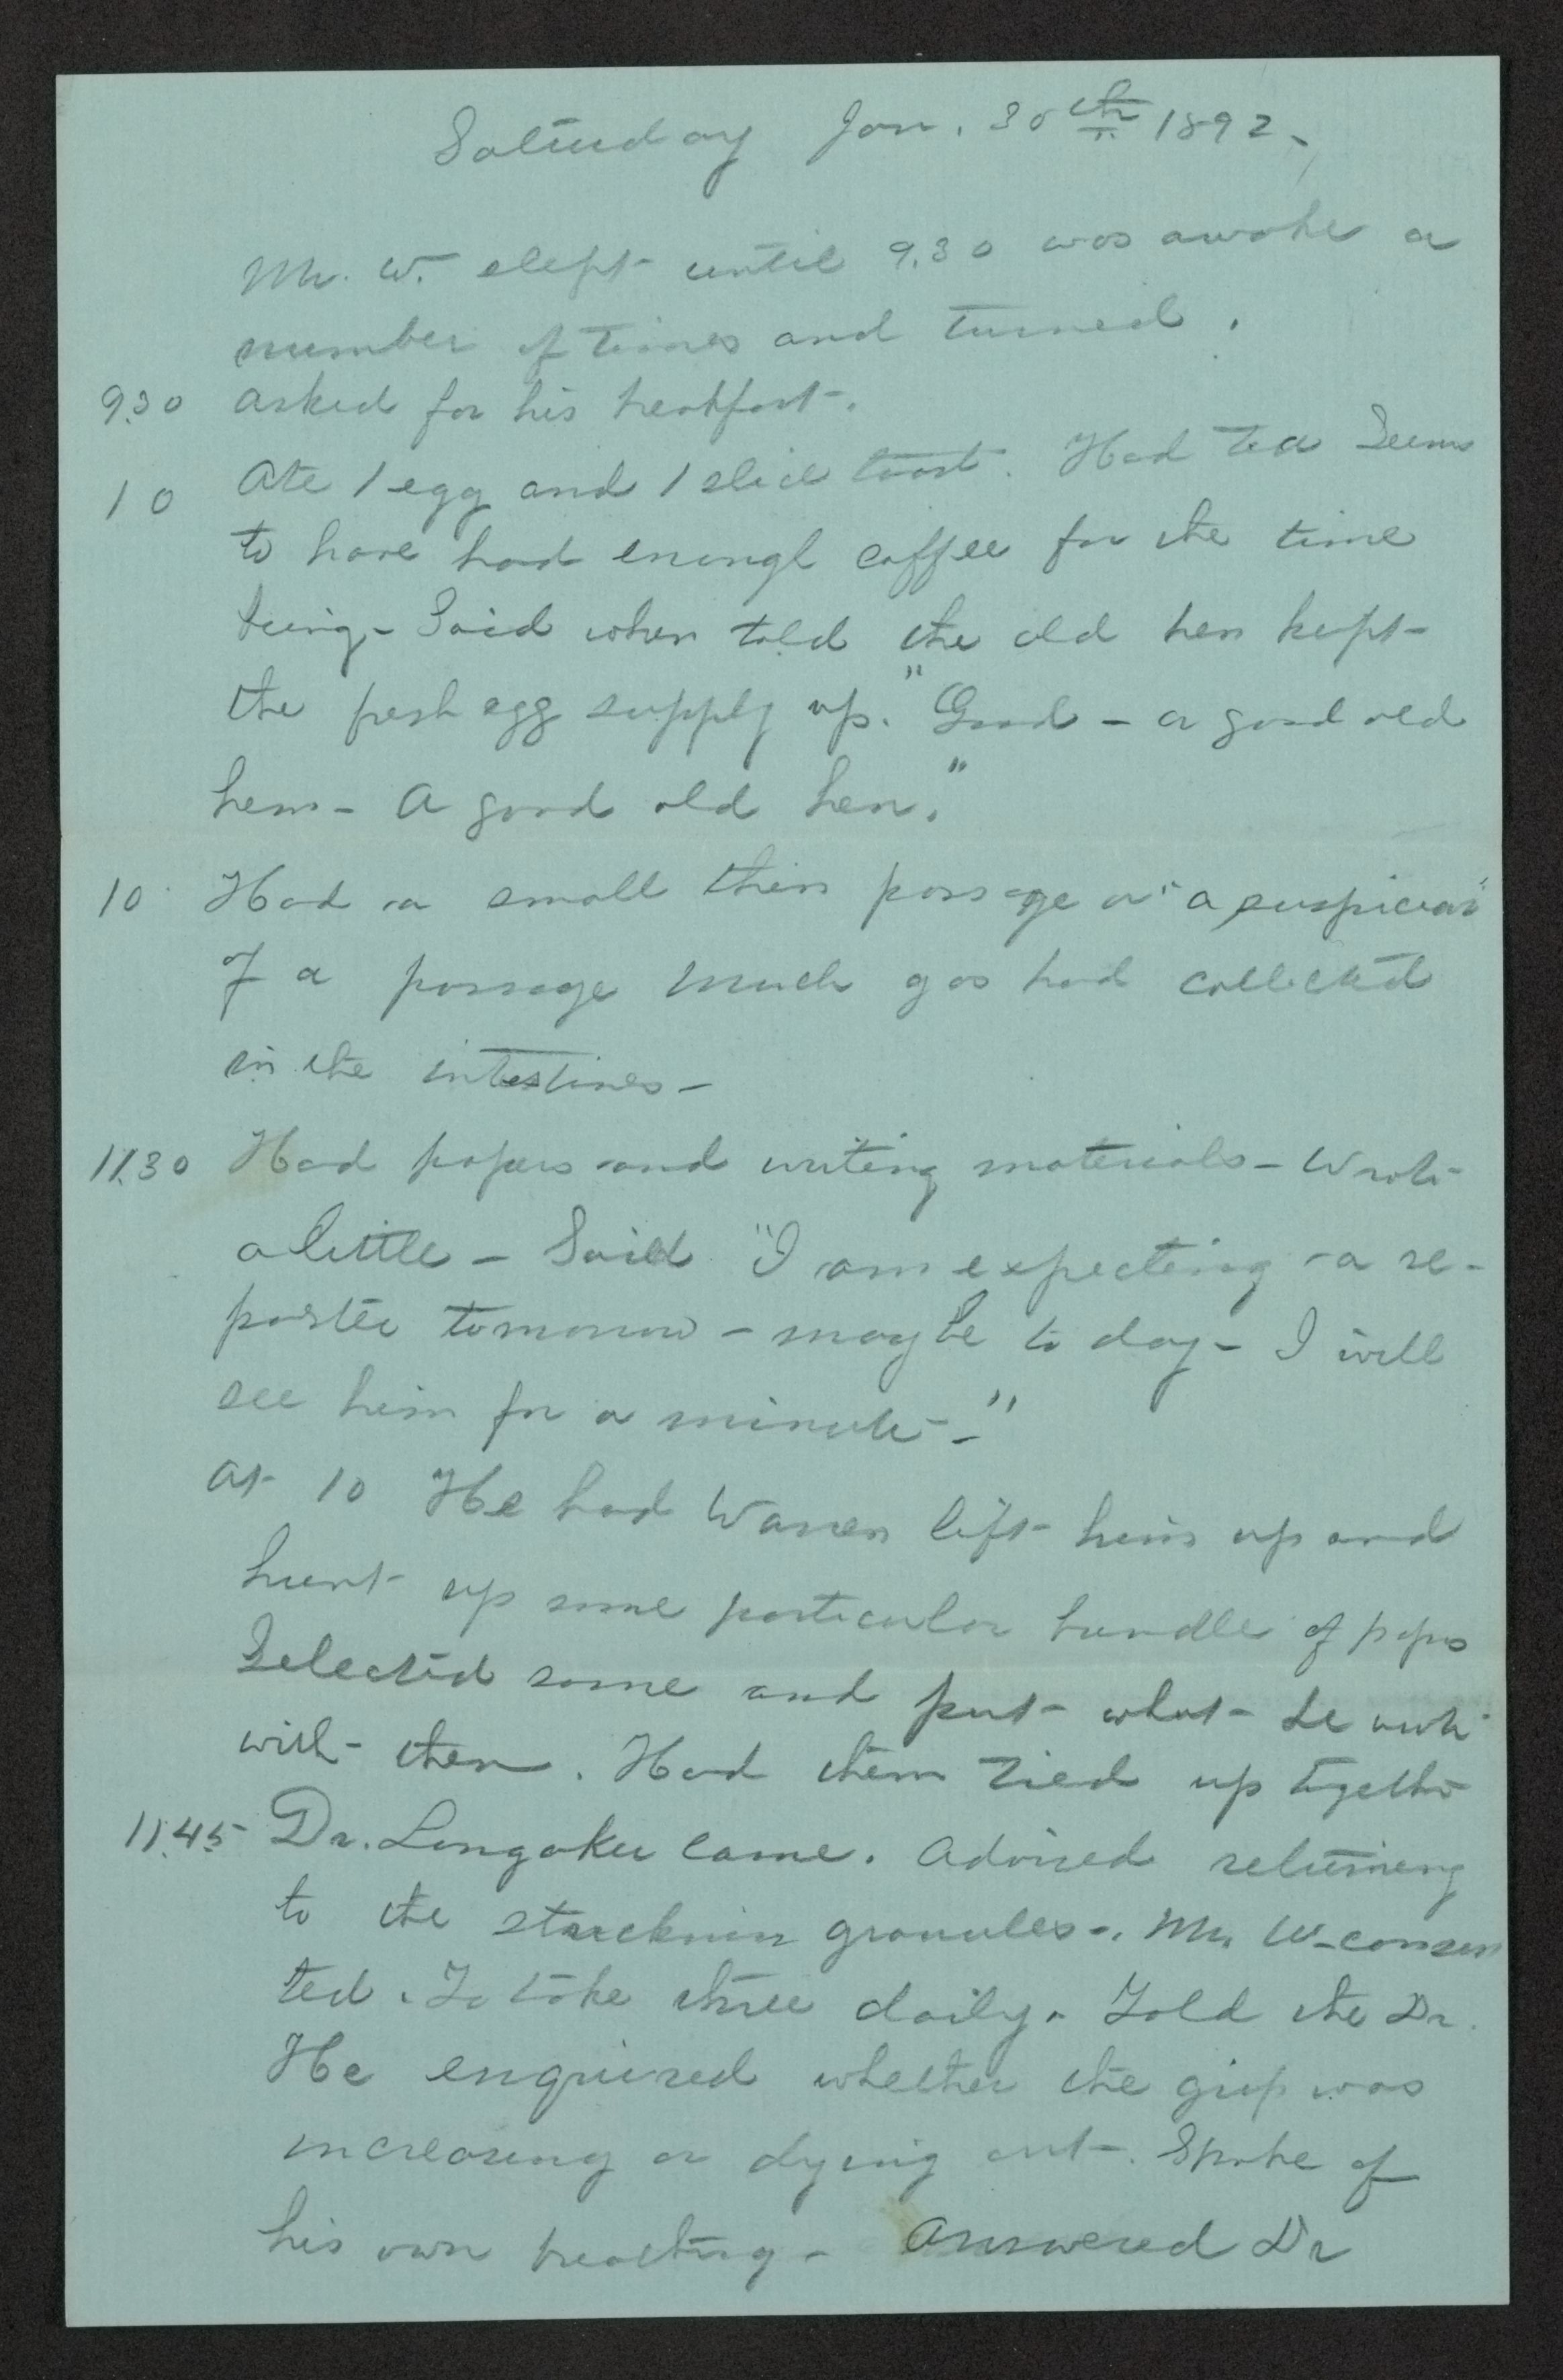 Saturday Jan. 30th 1892.
Mr. W. slept until 9.30 was awake a
number of times and turned.
9.30 asked for his breakfast.
10 Ate 1 egg and 1 slice toast. Had tea Seems
to have had enough coffee for the time
being - Said when told the old hen kept
the fresh egg supply up. "Good - a good old
hen - A good old hen."
10 Had a small thin passage or "a suspicion"
of a passage much gas had collected
in the intestines -
11.30 Had papers and writing materials - Wrote
a little - Said "I am expecting a re-
porter tomorrow - maybe to day - I will
see him for a minute -"
At 10 He had Warren lift him up and
hunt up some particular bundle of papers
Selected some and put what he wrote
with them. Had them tied up together
11.45 Dr. Longaker came. Advised returning
to the strychnin granules -. Mr. W - consen
ted. To take three daily. Told the Dr.
He enquired whether the grip was
increasing or dying out. Spoke of
his own breathing - Answered Dr